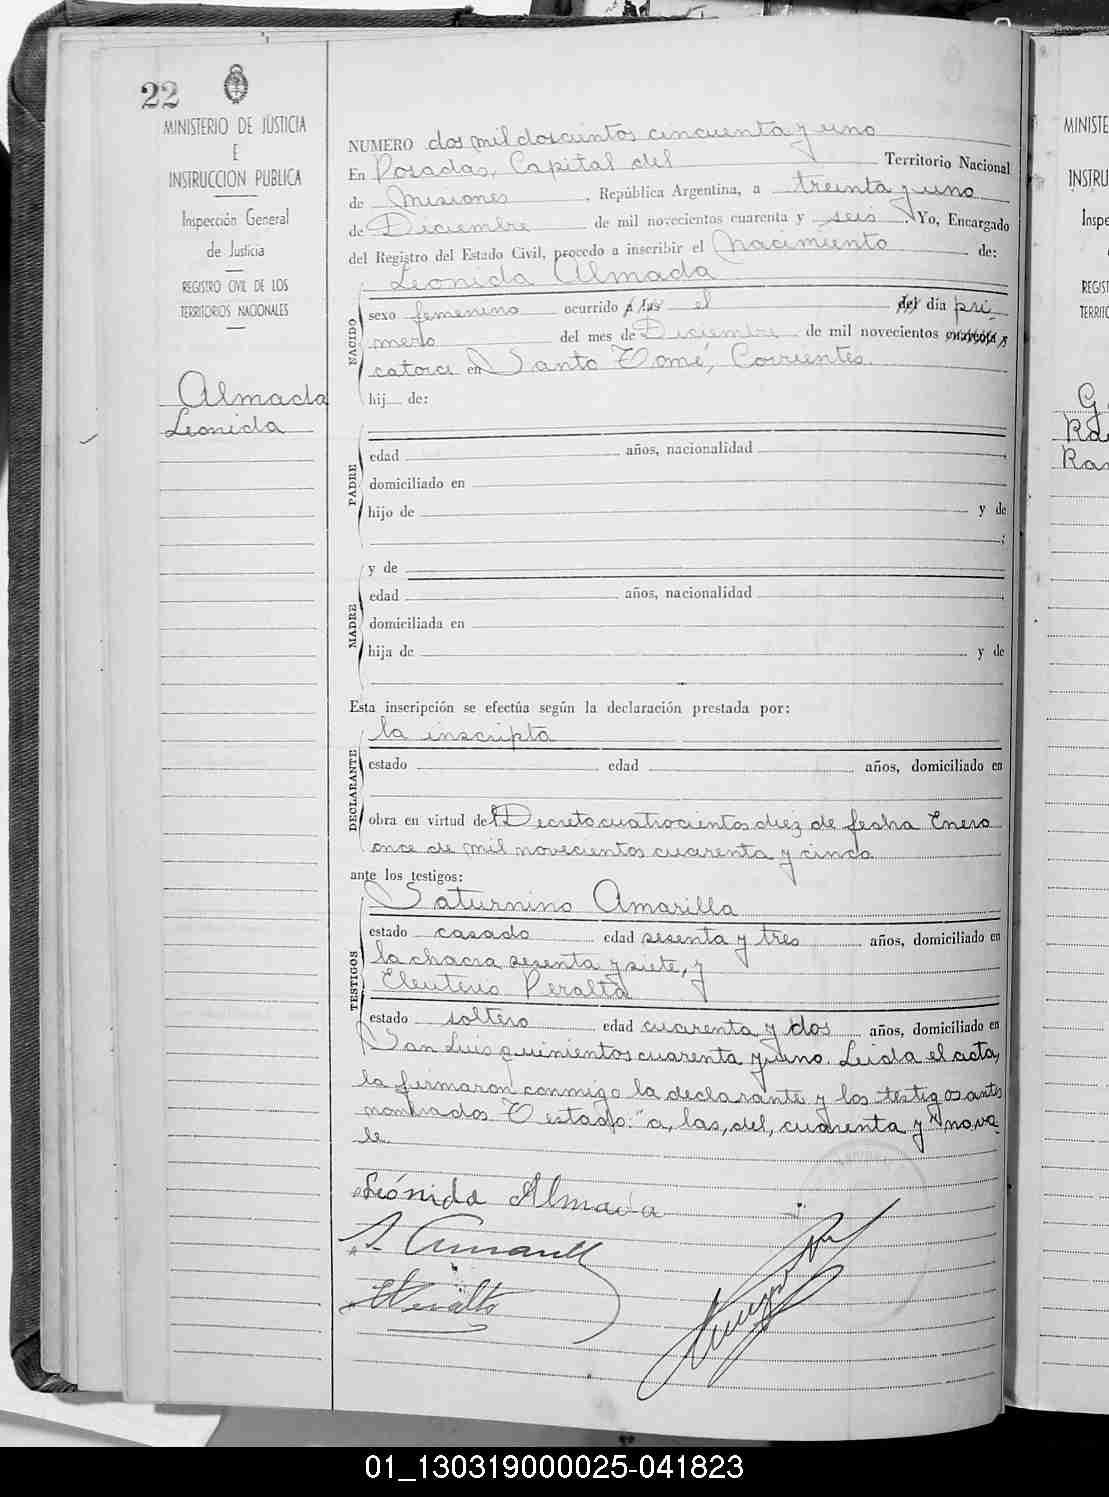 22
MINISTERIO DE JUSTICIA
E
INSTRUCCION PUBLICA
Inspección General
de Justicia
REGISTRO CIVIL DE LOS
TERRITORIOS NACIONALES
Almada
Leonida
NUMERO dos mil doscientos cincuenta y uno
En Posadas, Capital del Territorio Nacional
de Misiones, República Argentina, a treinta y uno
de Diciembre de mil novecientos cuarenta y seis. Yo, Encargado
del Registro del Estado Civil, procedo a inscribir el Nacimiento de:
Leonida Almada
NACIDO
sexo femenino ocurrido a las el del día pri-
mero del mes de Diciembre de mil novecientos cuarenta y
catorce en Santo Tomé, Corrientes.
hij de:
PADRE
edad años, nacionalidad
domiciliado en
hijo de y de
;
MADRE
y de
edad años, nacionalidad
domiciliada en
hija de y de
Esta inscripción se efectúa según la declaración prestada por:
DECLARANTE
la inscripta
estado edad años, domiciliado en
obra en virtud del Decreto cuatrocientos diez de fecha Enero
once de mil novecientos cuarenta y cinco.
ante los testigos:
TESTIGOS
Saturnino Amarilla
estado casado edad sesenta y tres años, domiciliado en
la chacra sesenta y siete, y
Eleuterio Peralta
estado soltero edad cuarenta y dos años, domiciliado en
San Luis quinientos cuarenta y uno. Leida el acta,
la firmaron conmigo la declarante y los testigos antes
nombrados. Testado: "a, las, del, cuarenta y" no va-
le.
Leónida Almada
S. Amarilla
E Peralta
MINISTE
INSTRU
Inspe
de
REGIST
TERRITO
G
Ra
Ram
01_130319000025-041823